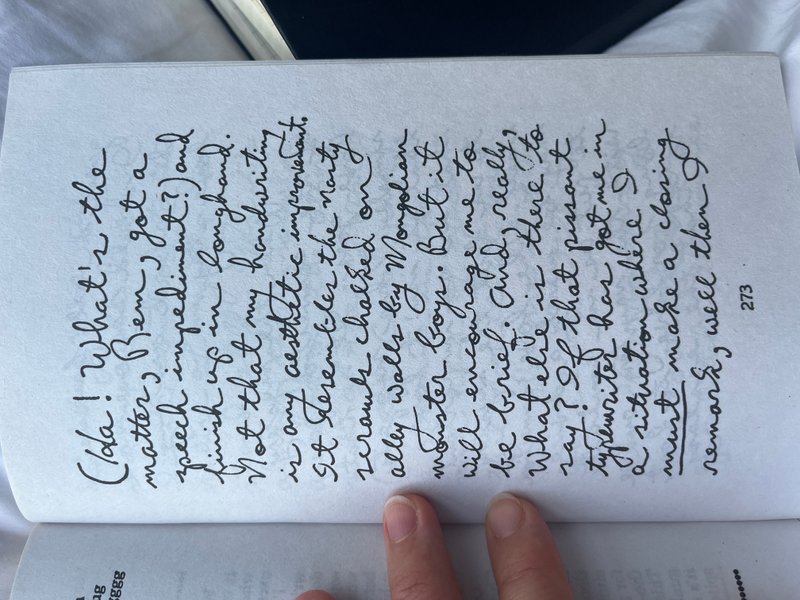 (Ha! What's the
matter, Rem, got a
speech impediment?) and
finish up in longhand.
Not that my handwriting
is any aesthetic improvement.
It resembles the nasty
scrawls chalked on
alley walls by Mongolian
monster boys. But it
will encourage me to
be brief. And, really,
what else is there to
say? If that pissant
typewriter has got me in
a situation where I
must make a closing
remark, well then I
273
ug
gggg